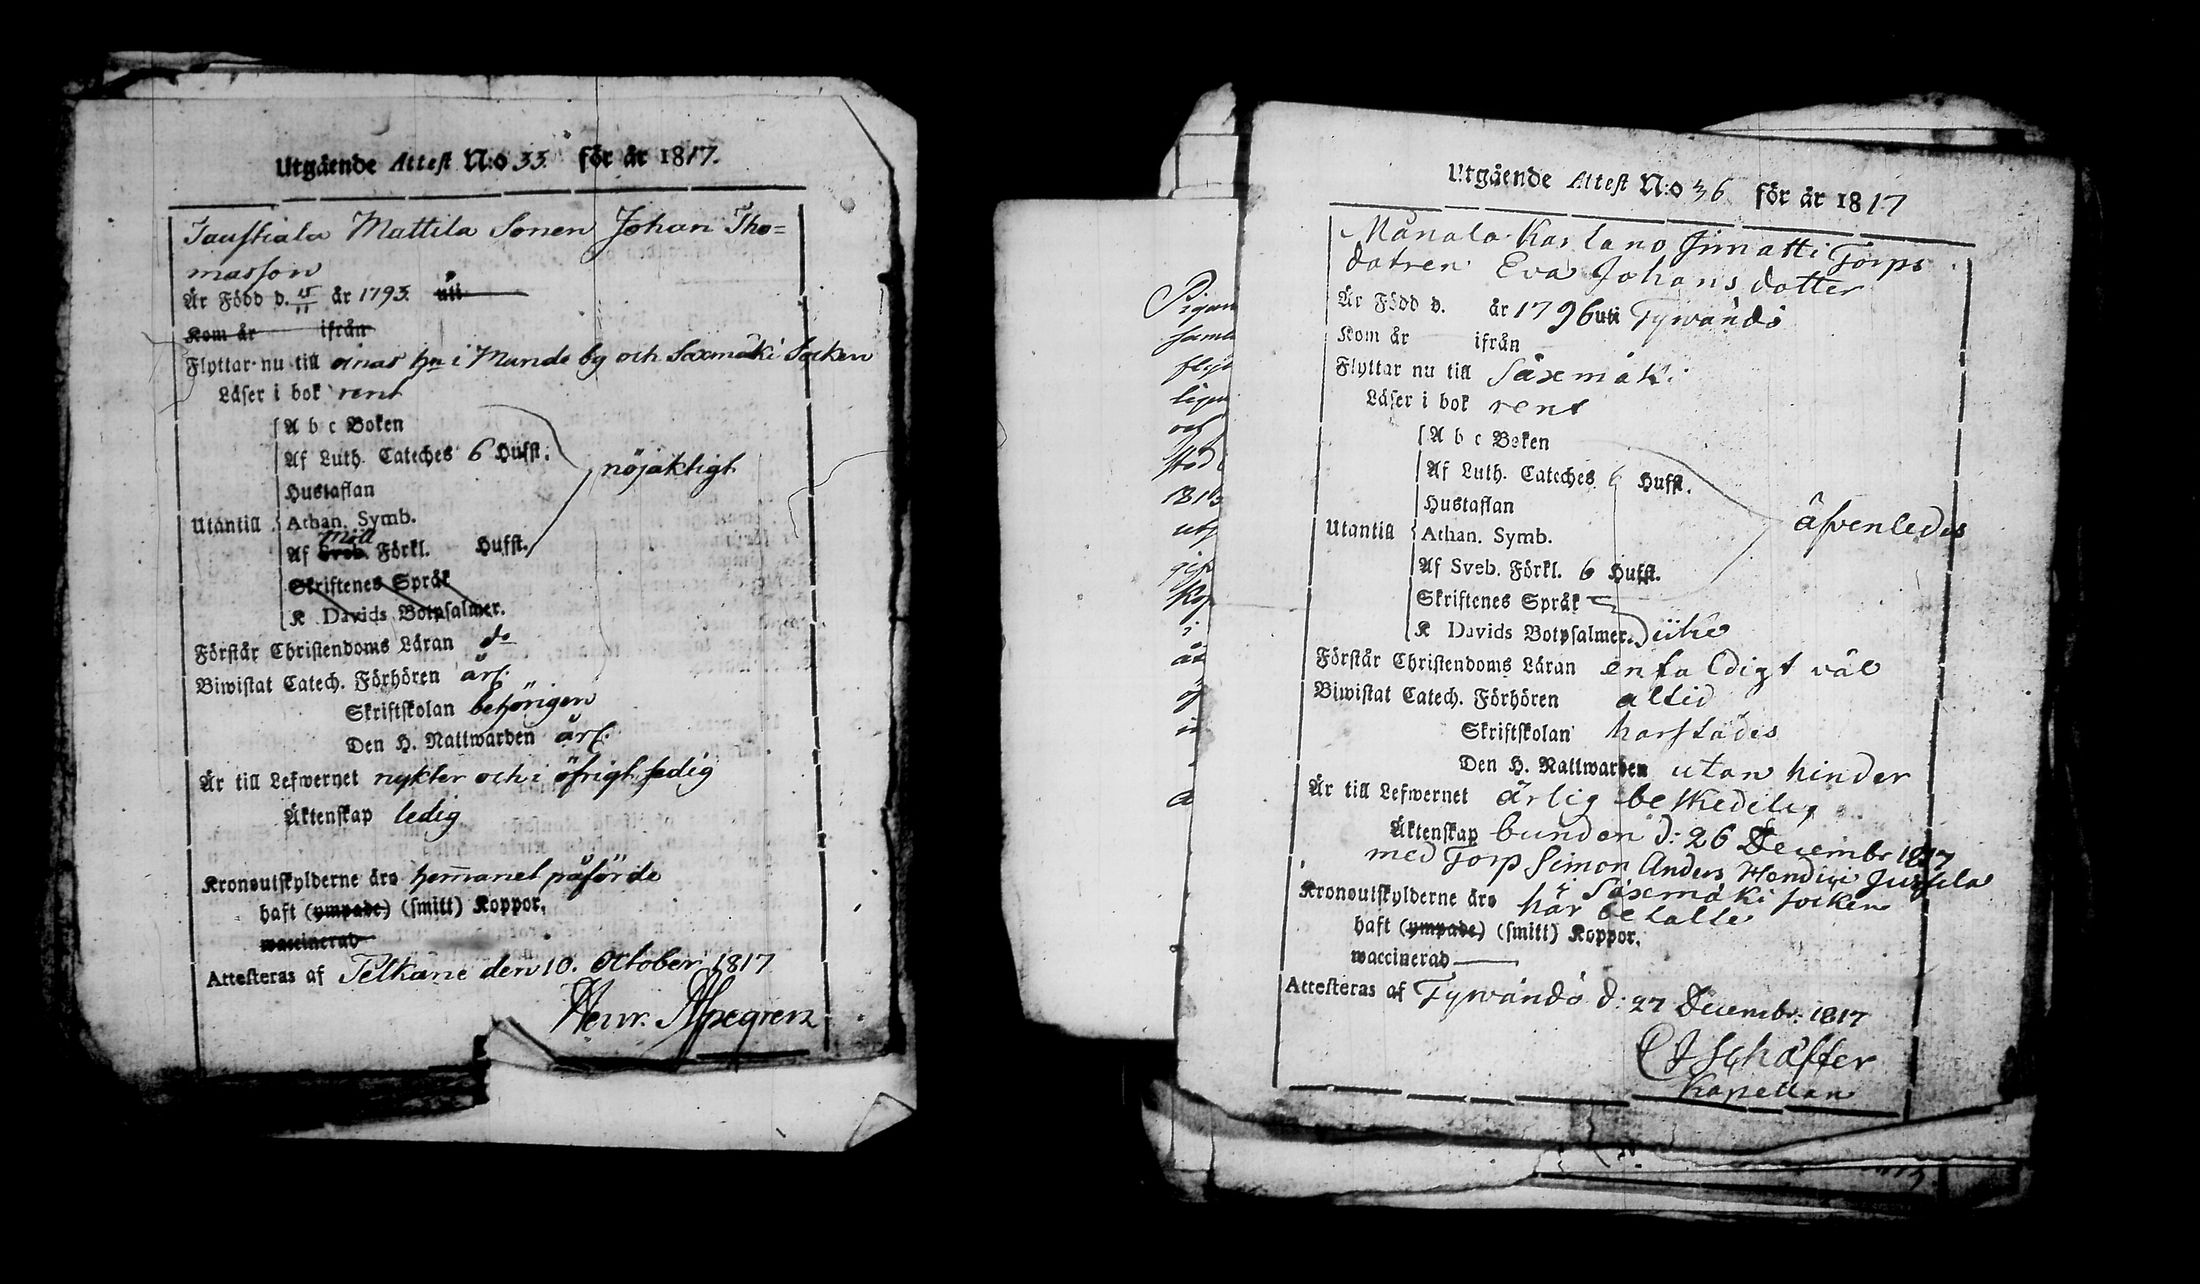 Utgående Attest N:o 33. för år 1817.
Taustiala Mattila Sonen Johan Tho=
masson
Är Född d. 15/11 år 1793. uti
Kom år ifrån
Flyttar nu till i by och Saxmäki Socken
Läser i bok rent
A b c Boken
Af Luth. Cateches 6 Hufst.
nöjaktigt
Hustaflan
Utantill
Athan. Symb.
Af Sveb. Förkl. Hufst.
Skriftenes Språk
K Davids Botpsalmer.
Förstår Christendoms Läran do
Biwistat Catech. Förhören årl.
Skriftskolan behörigen
Den H. Nattwarden årl.
Är till Lefwernet nykter och i öfrigt sedig
Äktenskap ledig
Kronoutskylderne äro hemmanet påförde
haft (ympade) (smitt) Koppor.
waccinerad
Attesteras af Pelkäne den 10. October 1817
Henr.
Utgående Attest N:o 36 för år 1817
Torps
dotren Eva Johans dotter
Är Född d. år 1796 uti Tywändö
Kom år ifrån
Flyttar nu till Säxmäki
Läser i bok rent
A b c Boken
Af Luth. Cateches 6 Hufst.
Hustaflan
äfvenledes
Utantill
Athan. Symb.
Af Sveb. Förkl. 6 Hufst.
Skriftenes Språk
K Davids Botpsalmer.
Förstår Christendoms Läran enfaldigt väl
Biwistat Catech. Förhören altid
Skriftskolan harstädes
Den H. Nattwarden utan hinder
Är till Lefwernet ärlig beskedelig
Äktenskap bunden d: 26 Decembr 1817
med Torp Simon Anders Jussila
Säxmäki socken
Kronoutskylderne äro här betalte
haft (ympade) (smitt) Koppor.
waccinerad
Attesteras af Tywändö d: 27 Decembr. 1817
Schäffer
Kapellan